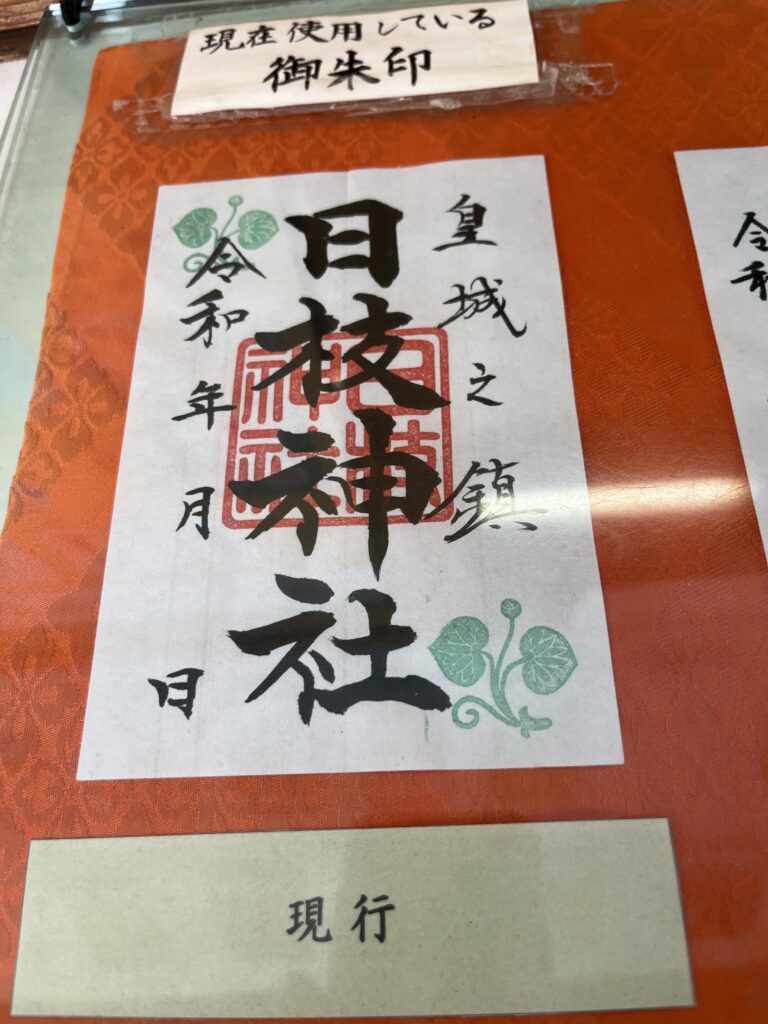 現在使用している
御朱印
皇城之鎮
日枝神社
日枝神社
令和年月日
令和
現行